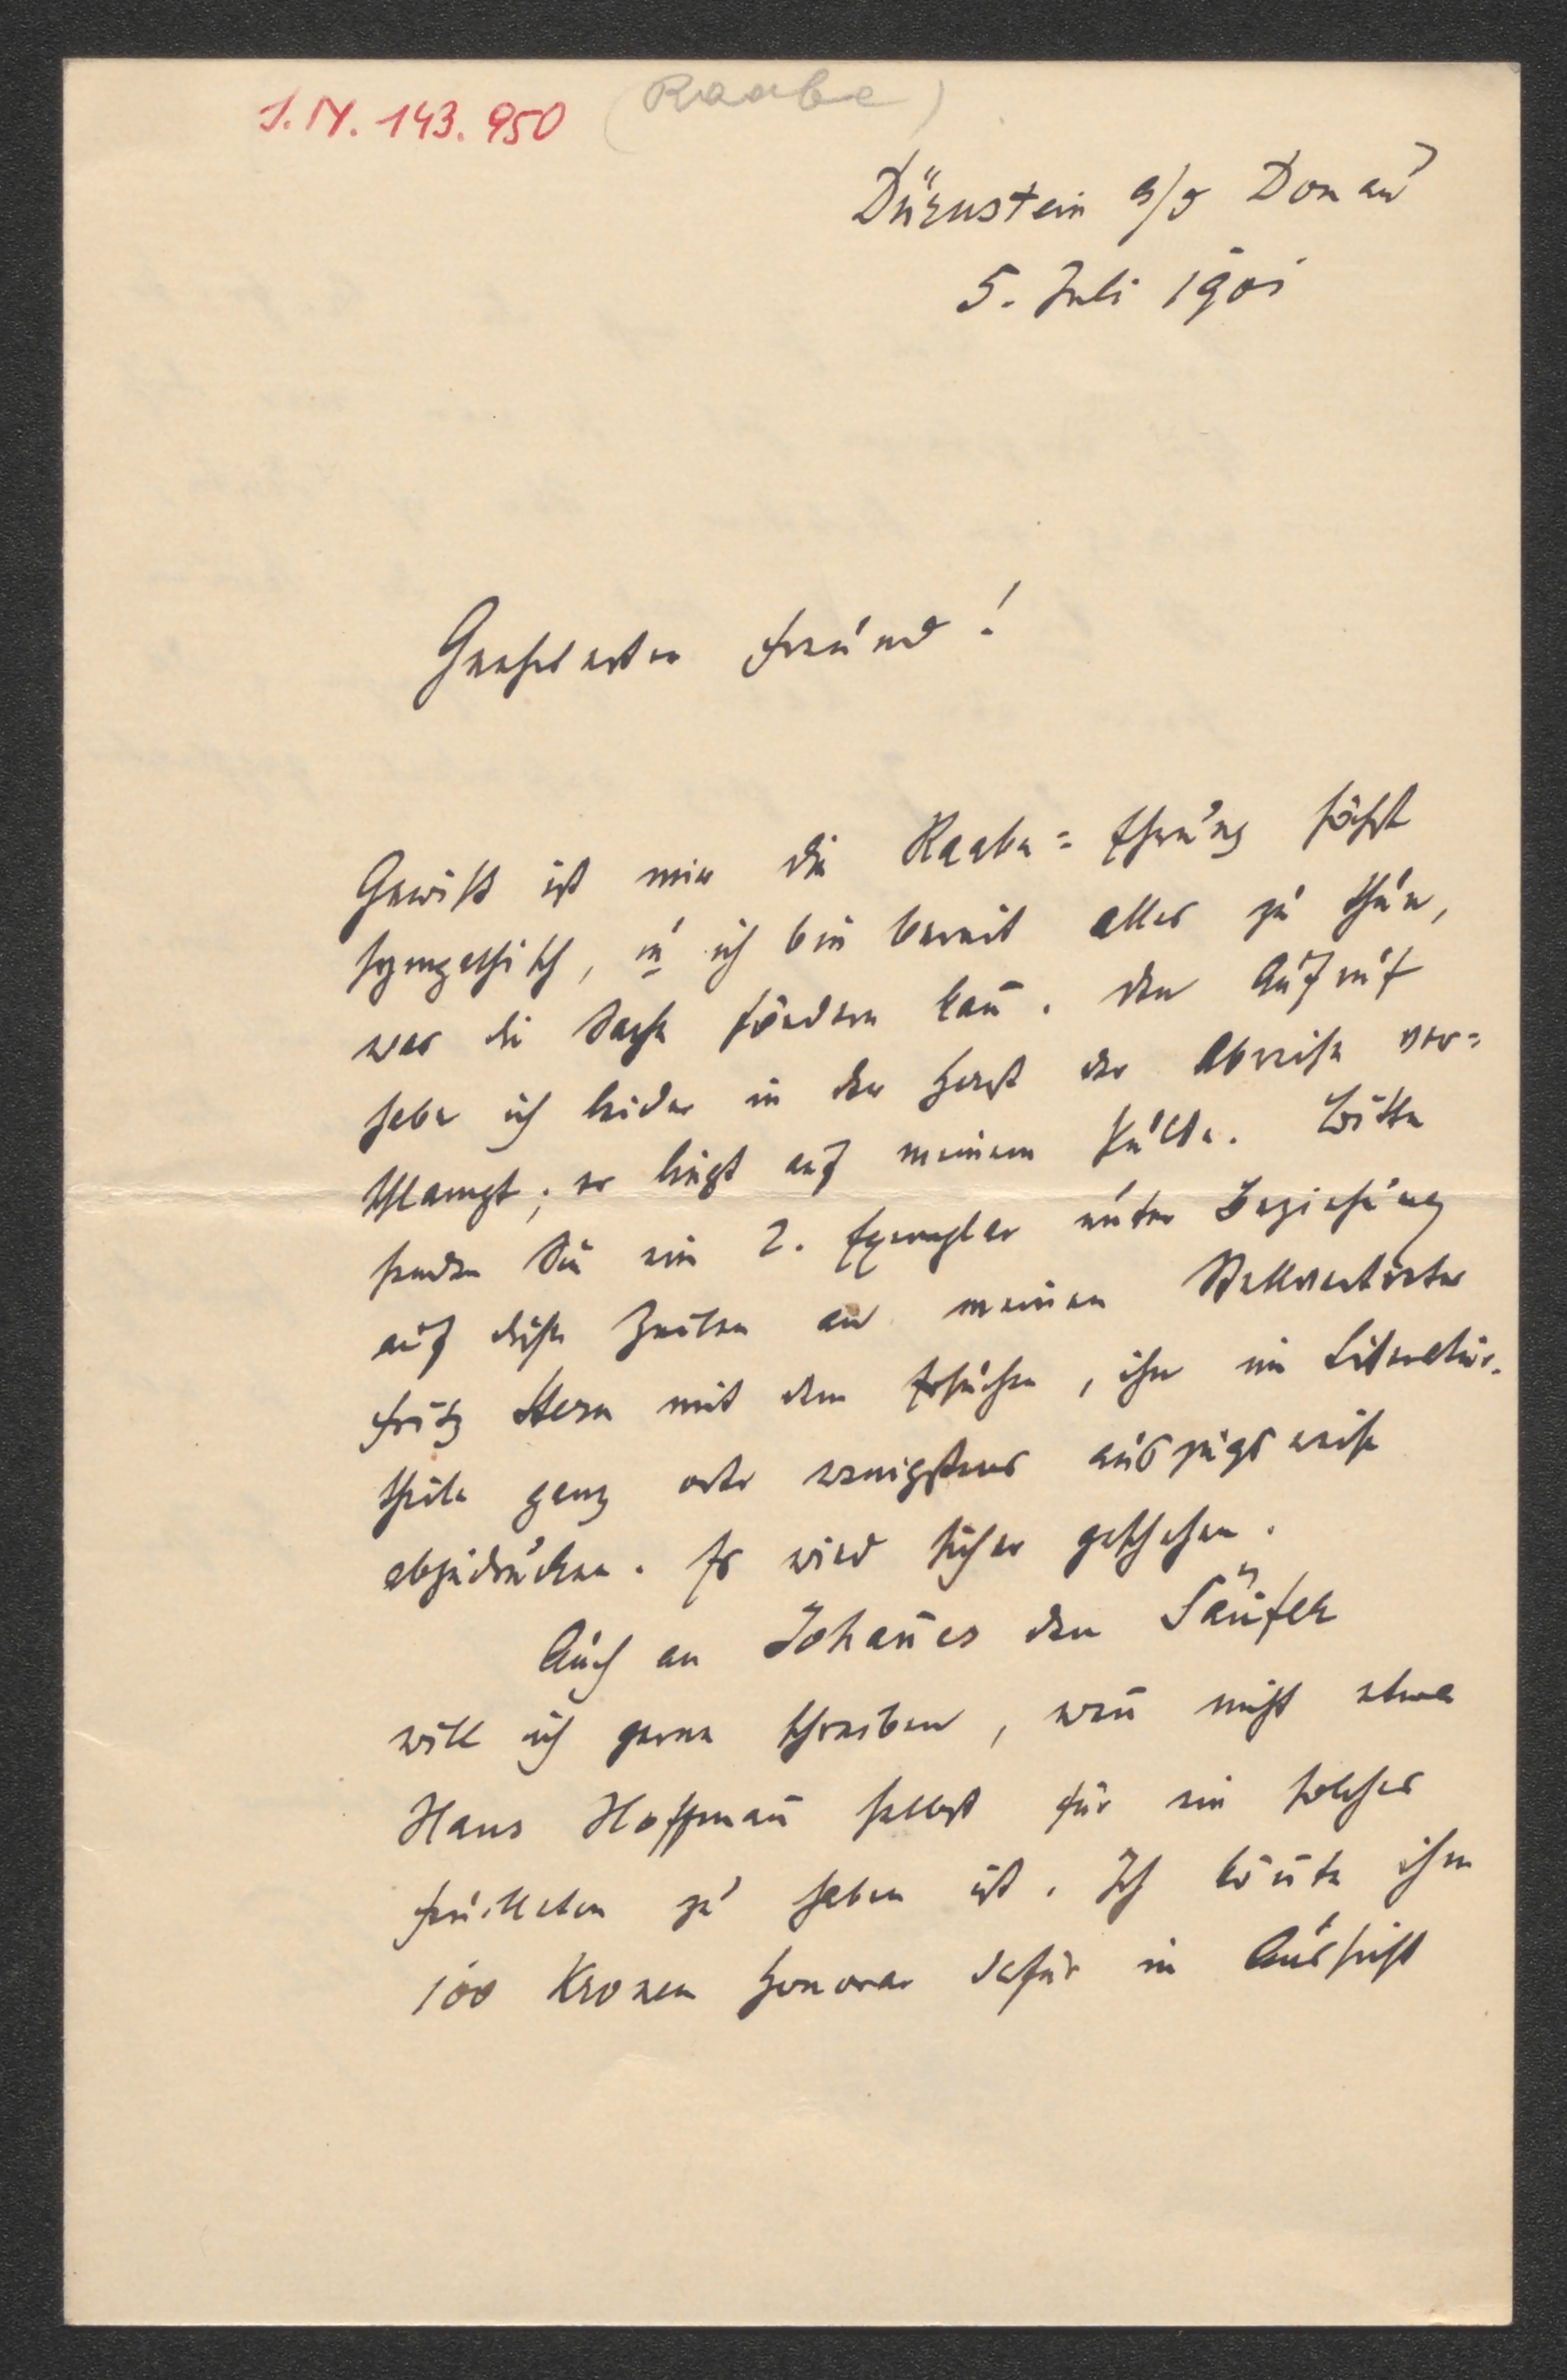 I. N. 143.950
(Raabe)
Dürnstein a/d Donau
5. Juli 1901
Geehrtester Freund!
Gewiß ist mir die Raabe-Ehrung höchst
sympathisch, u ich bin bereit alles zu thun,
was die Sache fördern kan̄. Den Aufruf
habe ich leider in der Hast der Abreise ver-
schlampt; er liegt auf meinem Pulte. Bitte
senden Sie ein 2. Exemplar unter Beziehung
auf diese Zeilen an meinen Stellvertreter
Fritz Stern mit dem Ersuchen, ihn im Literatur-
theile ganz oder wenigstens auszugsweise
abzudrucken. Es wird sicher geschehen.
Auch an Johan̄es den Säufer
will ich gerne schreiben, wen̄ nicht etwa
Hans Hoffman̄ selbst für ein solches
Feuilleton zu haben ist. Ich kön̄te ihm
100 Kronen Honorar dafür in Aussicht